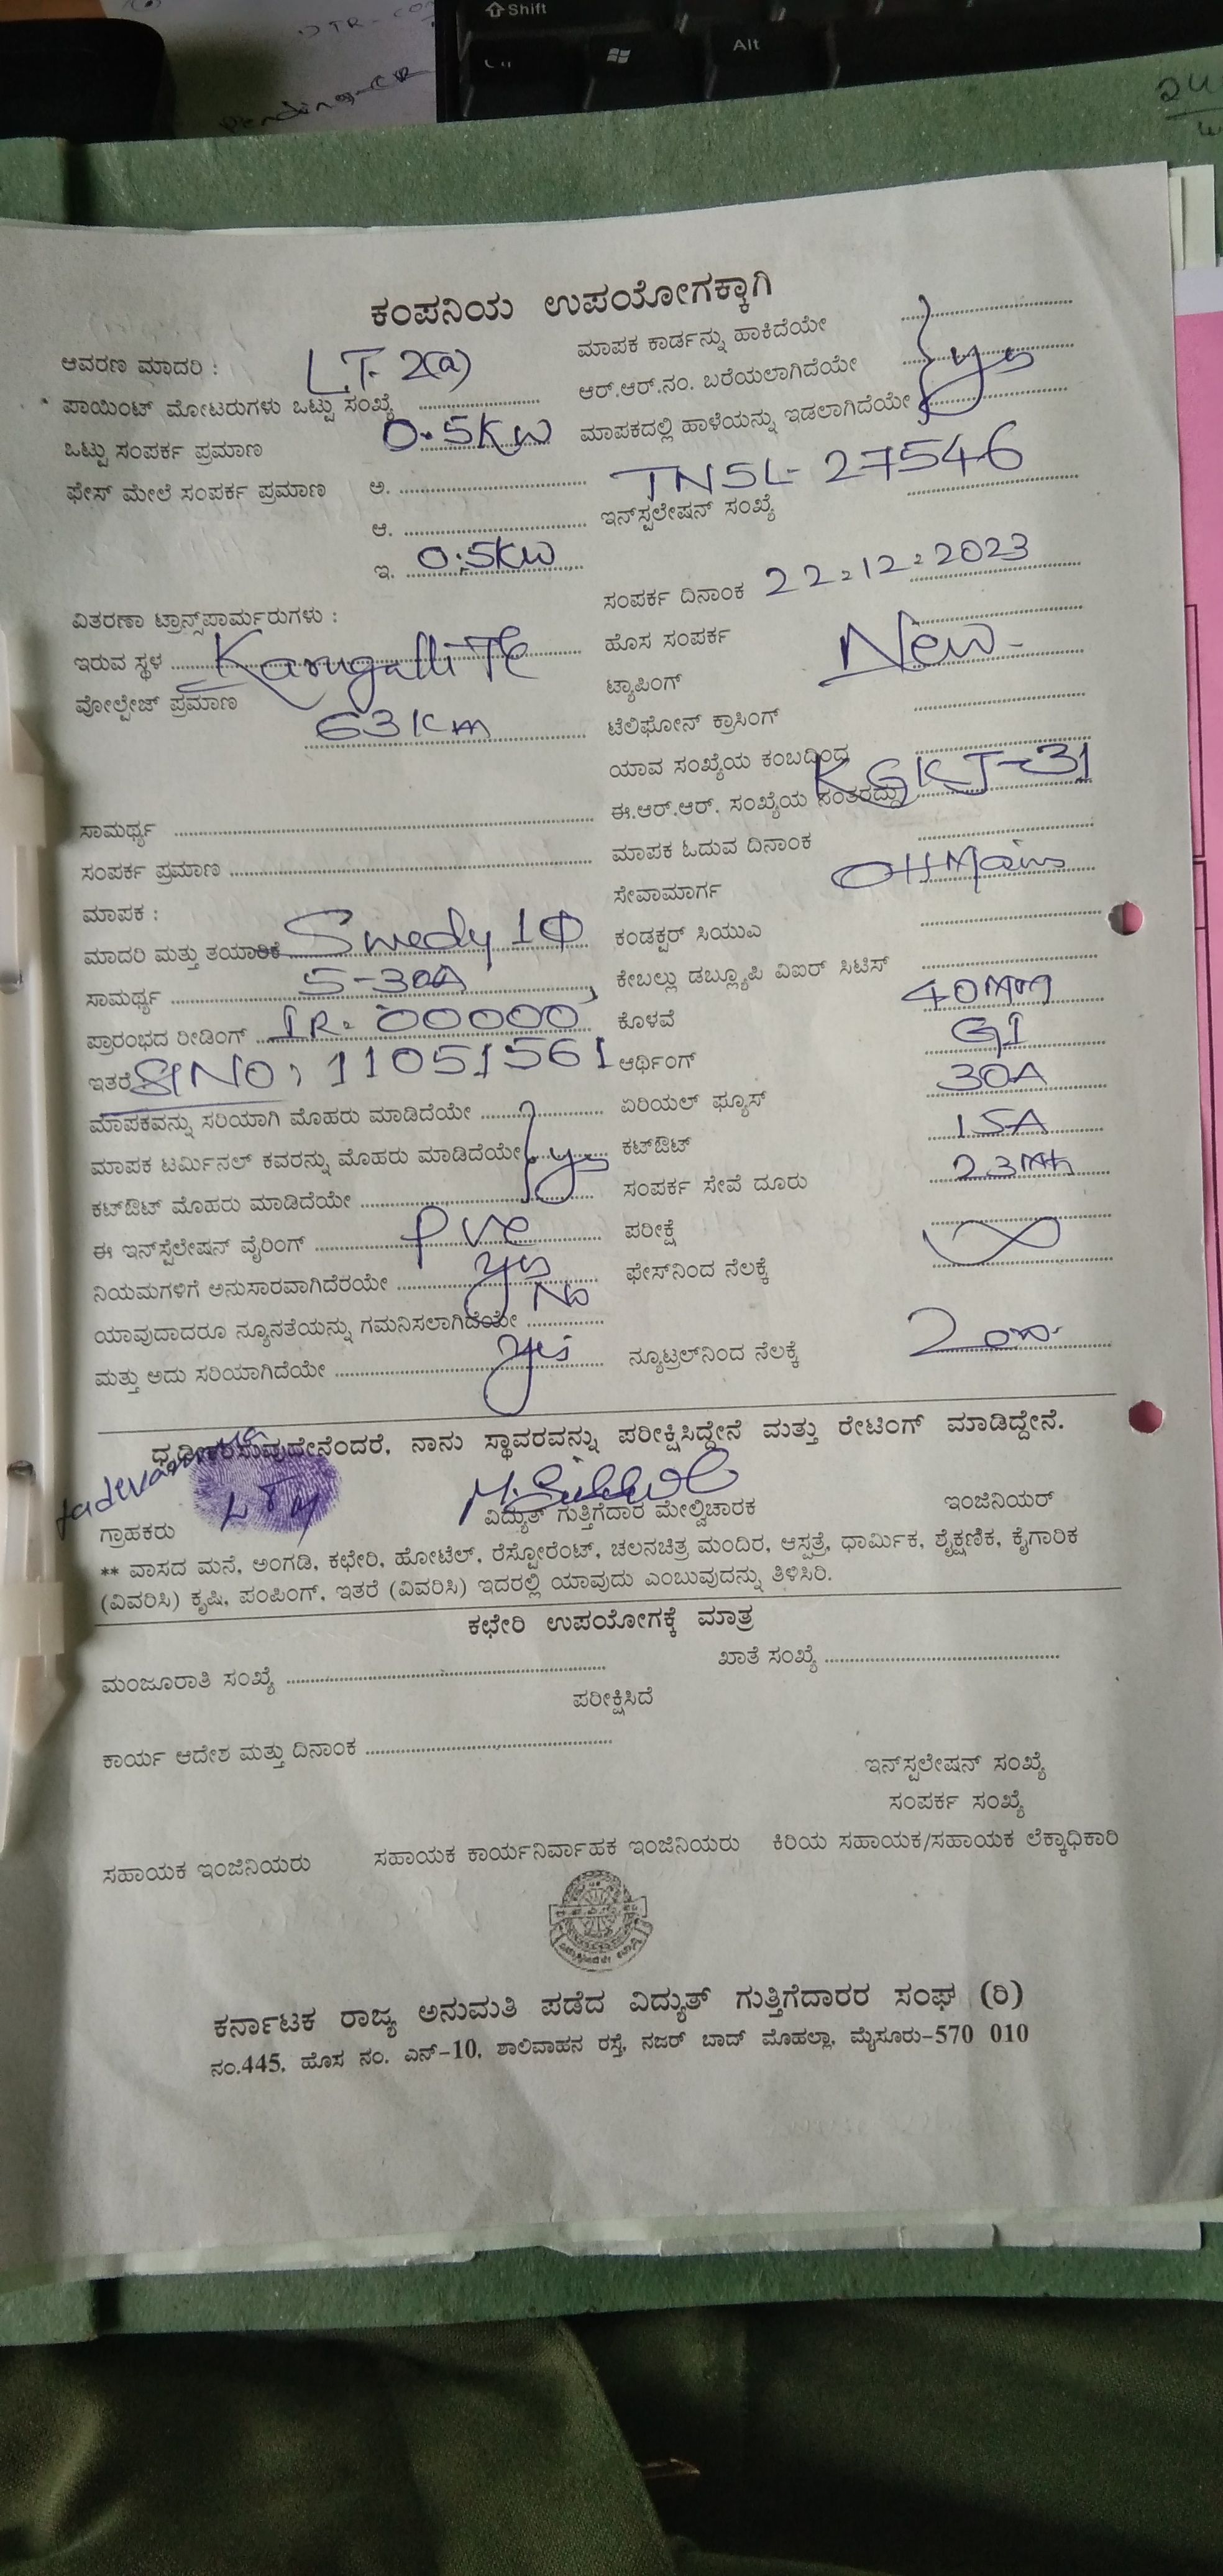 Shift
Alt
Pending-CR
ಕಂಪನಿಯ ಉಪಯೋಗಕ್ಕಾಗಿ
ಆವರಣ ಮಾದರಿ : LT-2(a)
ಪಾಯಿಂಟ್ ಮೋಟರುಗಳು ಒಟ್ಟು ಸಂಖ್ಯೆ
ಒಟ್ಟು ಸಂಪರ್ಕ ಪ್ರಮಾಣ 0.5KW
ಫೇಸ್ ಮೇಲೆ ಸಂಪರ್ಕ ಪ್ರಮಾಣ ಅ.
ಆ.
ಇ. 0.5KW
ವಿತರಣಾ ಟ್ರಾನ್ಸ್‌ಪಾರ್ಮರುಗಳು :
ಇರುವ ಸ್ಥಳ Karugalli TC
ವೋಲ್ಟೇಜ್ ಪ್ರಮಾಣ
63
ಸಾಮರ್ಥ್ಯ
ಸಂಪರ್ಕ ಪ್ರಮಾಣ
ಮಾಪಕ :
ಮಾದರಿ ಮತ್ತು ತಯಾರಿಕೆ Swedy 1Φ
ಸಾಮರ್ಥ್ಯ 5-30A
ಪ್ರಾರಂಭದ ರೀಡಿಂಗ್ IR. 00000
ಇತರೆ Sl No, 11051561
ಮಾಪಕವನ್ನು ಸರಿಯಾಗಿ ಮೊಹರು ಮಾಡಿದೆಯೇ
ಮಾಪಕ ಟರ್ಮಿನಲ್ ಕವರನ್ನು ಮೊಹರು ಮಾಡಿದೆಯೇ yes
ಕಟ್‌ಔಟ್ ಮೊಹರು ಮಾಡಿದೆಯೇ
ಈ ಇನ್‌ಸ್ಟೆಲೇಷನ್ ವೈರಿಂಗ್ PVC
ನಿಯಮಗಳಿಗೆ ಅನುಸಾರವಾಗಿದೆರಯೇ yes
ಯಾವುದಾದರೂ ನ್ಯೂನತೆಯನ್ನು ಗಮನಿಸಲಾಗಿದೆಯೇ No
ಮತ್ತು ಅದು ಸರಿಯಾಗಿದೆಯೇ yes
ಮಾಪಕ ಕಾರ್ಡನ್ನು ಹಾಕಿದೆಯೇ
ಆರ್.ಆರ್.ನಂ. ಬರೆಯಲಾಗಿದೆಯೇ yes
ಮಾಪಕದಲ್ಲಿ ಹಾಳೆಯನ್ನು ಇಡಲಾಗಿದೆಯೇ
TNSL-27546
ಇನ್‌ಸ್ಟಲೇಷನ್ ಸಂಖ್ಯೆ
ಸಂಪರ್ಕ ದಿನಾಂಕ 22.12.2023
ಹೊಸ ಸಂಪರ್ಕ New
ಟ್ಯಾಪಿಂಗ್
ಟೆಲಿಫೋನ್ ಕ್ರಾಸಿಂಗ್
ಯಾವ ಸಂಖ್ಯೆಯ ಕಂಬದಿಂದ KGKT-31
ಈ.ಆರ್.ಆರ್. ಸಂಖ್ಯೆಯ ನಂತರದ್ದು
ಮಾಪಕ ಓದುವ ದಿನಾಂಕ
ಸೇವಾಮಾರ್ಗ OH Mains
ಕಂಡಕ್ಟರ್ ಸಿಯುಎ
ಕೇಬಲ್ಲು ಡಬ್ಲ್ಯೂಪಿ ವಿಐರ್ ಸಿಟಿಸ್
ಕೊಳವೆ 40MM
ಆರ್ಥಿಂಗ್ GI
ಏರಿಯಲ್ ಫ್ಯೂಸ್ 30A
ಕಟ್‌ಔಟ್ 15A
ಸಂಪರ್ಕ ಸೇವೆ ದೂರು
ಪರೀಕ್ಷೆ
ಫೇಸ್‌ನಿಂದ ನೆಲಕ್ಕೆ ∞
ನ್ಯೂಟ್ರಲ್‌ನಿಂದ ನೆಲಕ್ಕೆ
ನಾನು ಸ್ಥಾವರವನ್ನು ಪರೀಕ್ಷಿಸಿದ್ದೇನೆ ಮತ್ತು ರೇಟಿಂಗ್ ಮಾಡಿದ್ದೇನೆ.
LTM
ಗ್ರಾಹಕರು ವಿದ್ಯುತ್ ಗುತ್ತಿಗೆದಾರ ಮೇಲ್ವಿಚಾರಕ ಇಂಜಿನಿಯರ್
** ವಾಸದ ಮನೆ, ಅಂಗಡಿ, ಕಛೇರಿ, ಹೋಟೆಲ್, ರೆಸ್ಟೋರೆಂಟ್, ಚಲನಚಿತ್ರ ಮಂದಿರ, ಆಸ್ಪತ್ರೆ, ಧಾರ್ಮಿಕ, ಶೈಕ್ಷಣಿಕ, ಕೈಗಾರಿಕ
(ವಿವರಿಸಿ) ಕೃಷಿ, ಪಂಪಿಂಗ್, ಇತರೆ (ವಿವರಿಸಿ) ಇದರಲ್ಲಿ ಯಾವುದು ಎಂಬುವುದನ್ನು ತಿಳಿಸಿರಿ.
ಕಛೇರಿ ಉಪಯೋಗಕ್ಕೆ ಮಾತ್ರ
ಮಂಜೂರಾತಿ ಸಂಖ್ಯೆ ಖಾತೆ ಸಂಖ್ಯೆ
ಪರೀಕ್ಷಿಸಿದೆ
ಕಾರ್ಯ ಆದೇಶ ಮತ್ತು ದಿನಾಂಕ
ಇನ್‌ಸ್ಟಲೇಷನ್ ಸಂಖ್ಯೆ
ಸಂಪರ್ಕ ಸಂಖ್ಯೆ
ಸಹಾಯಕ ಇಂಜಿನಿಯರು ಸಹಾಯಕ ಕಾರ್ಯನಿರ್ವಾಹಕ ಇಂಜಿನಿಯರು ಕಿರಿಯ ಸಹಾಯಕ/ಸಹಾಯಕ ಲೆಕ್ಕಾಧಿಕಾರಿ
ಕರ್ನಾಟಕ ರಾಜ್ಯ ಅನುಮತಿ ಪಡೆದ ವಿದ್ಯುತ್ ಗುತ್ತಿಗೆದಾರರ ಸಂಘ (ರಿ)
ನಂ.445, ಹೊಸ ನಂ. ಎನ್-10, ಶಾಲಿವಾಹನ ರಸ್ತೆ, ನಜರ್ ಬಾದ್ ಮೊಹಲ್ಲಾ, ಮೈಸೂರು-570 010